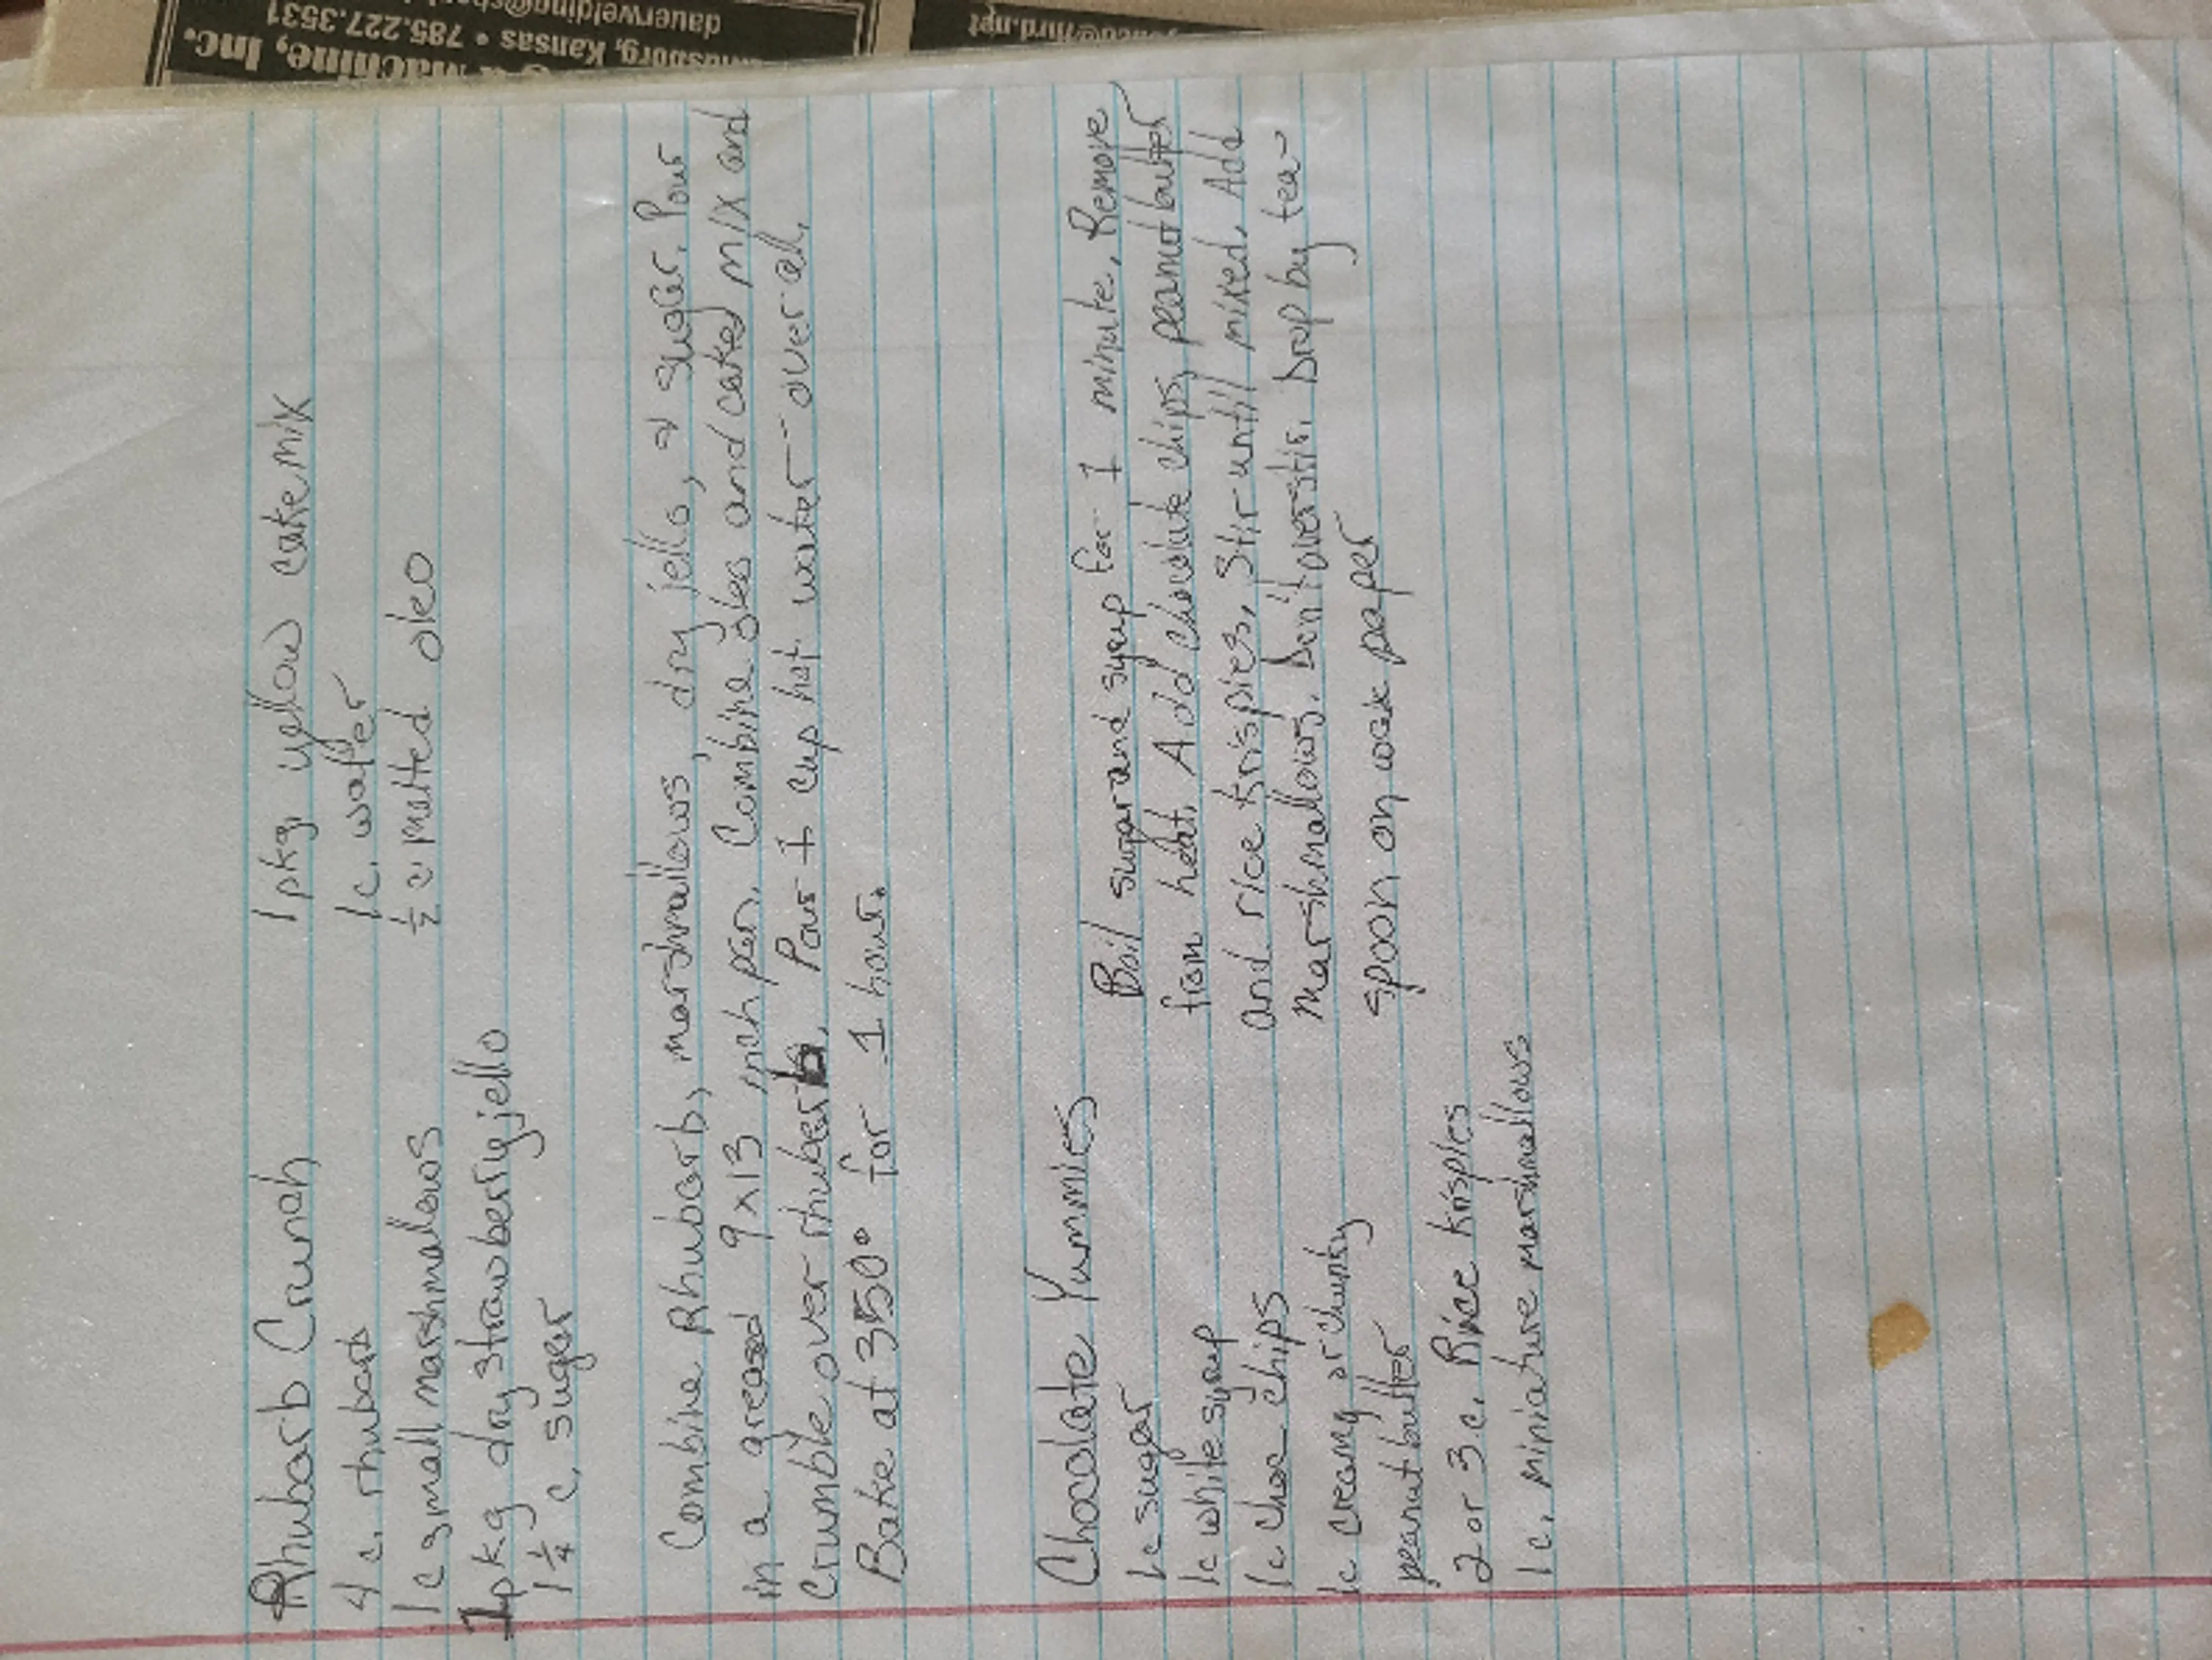 Rhubarb Crunch
4 c. rhubarb
1 c small marshmallows
1 pkg dry strawberry jello
1 1/4 c. suger
1 pkg. yellow cake mix
1 c. water
1/2 c. melted oleo
Combine Rhubarb, marshmallows, dry jello, & suger. Pour
in a greased 9x13 inch pan. Combine oleo and caked mix and
Crumble over rhubarb. Pour 1 cup hot water over all.
Bake at 350° for 1 hour.
Chocolate Yummies
1c sugar
1c white syrup
1c choc chips
1c creamy or chunky
peanut butter
2 or 3 c. Rice krisples
1c. miniature marshmallows
Boil sugar and syrup for 1 minute. Remove
from heat. Add chocolate chips, peanut butter
and rice krispies. Stir untill mixed. Add
marshmallows. Don't overstir. Drop by tea-
spoon on wax paper
Machine, Inc.
Kansas • 785.227.3531